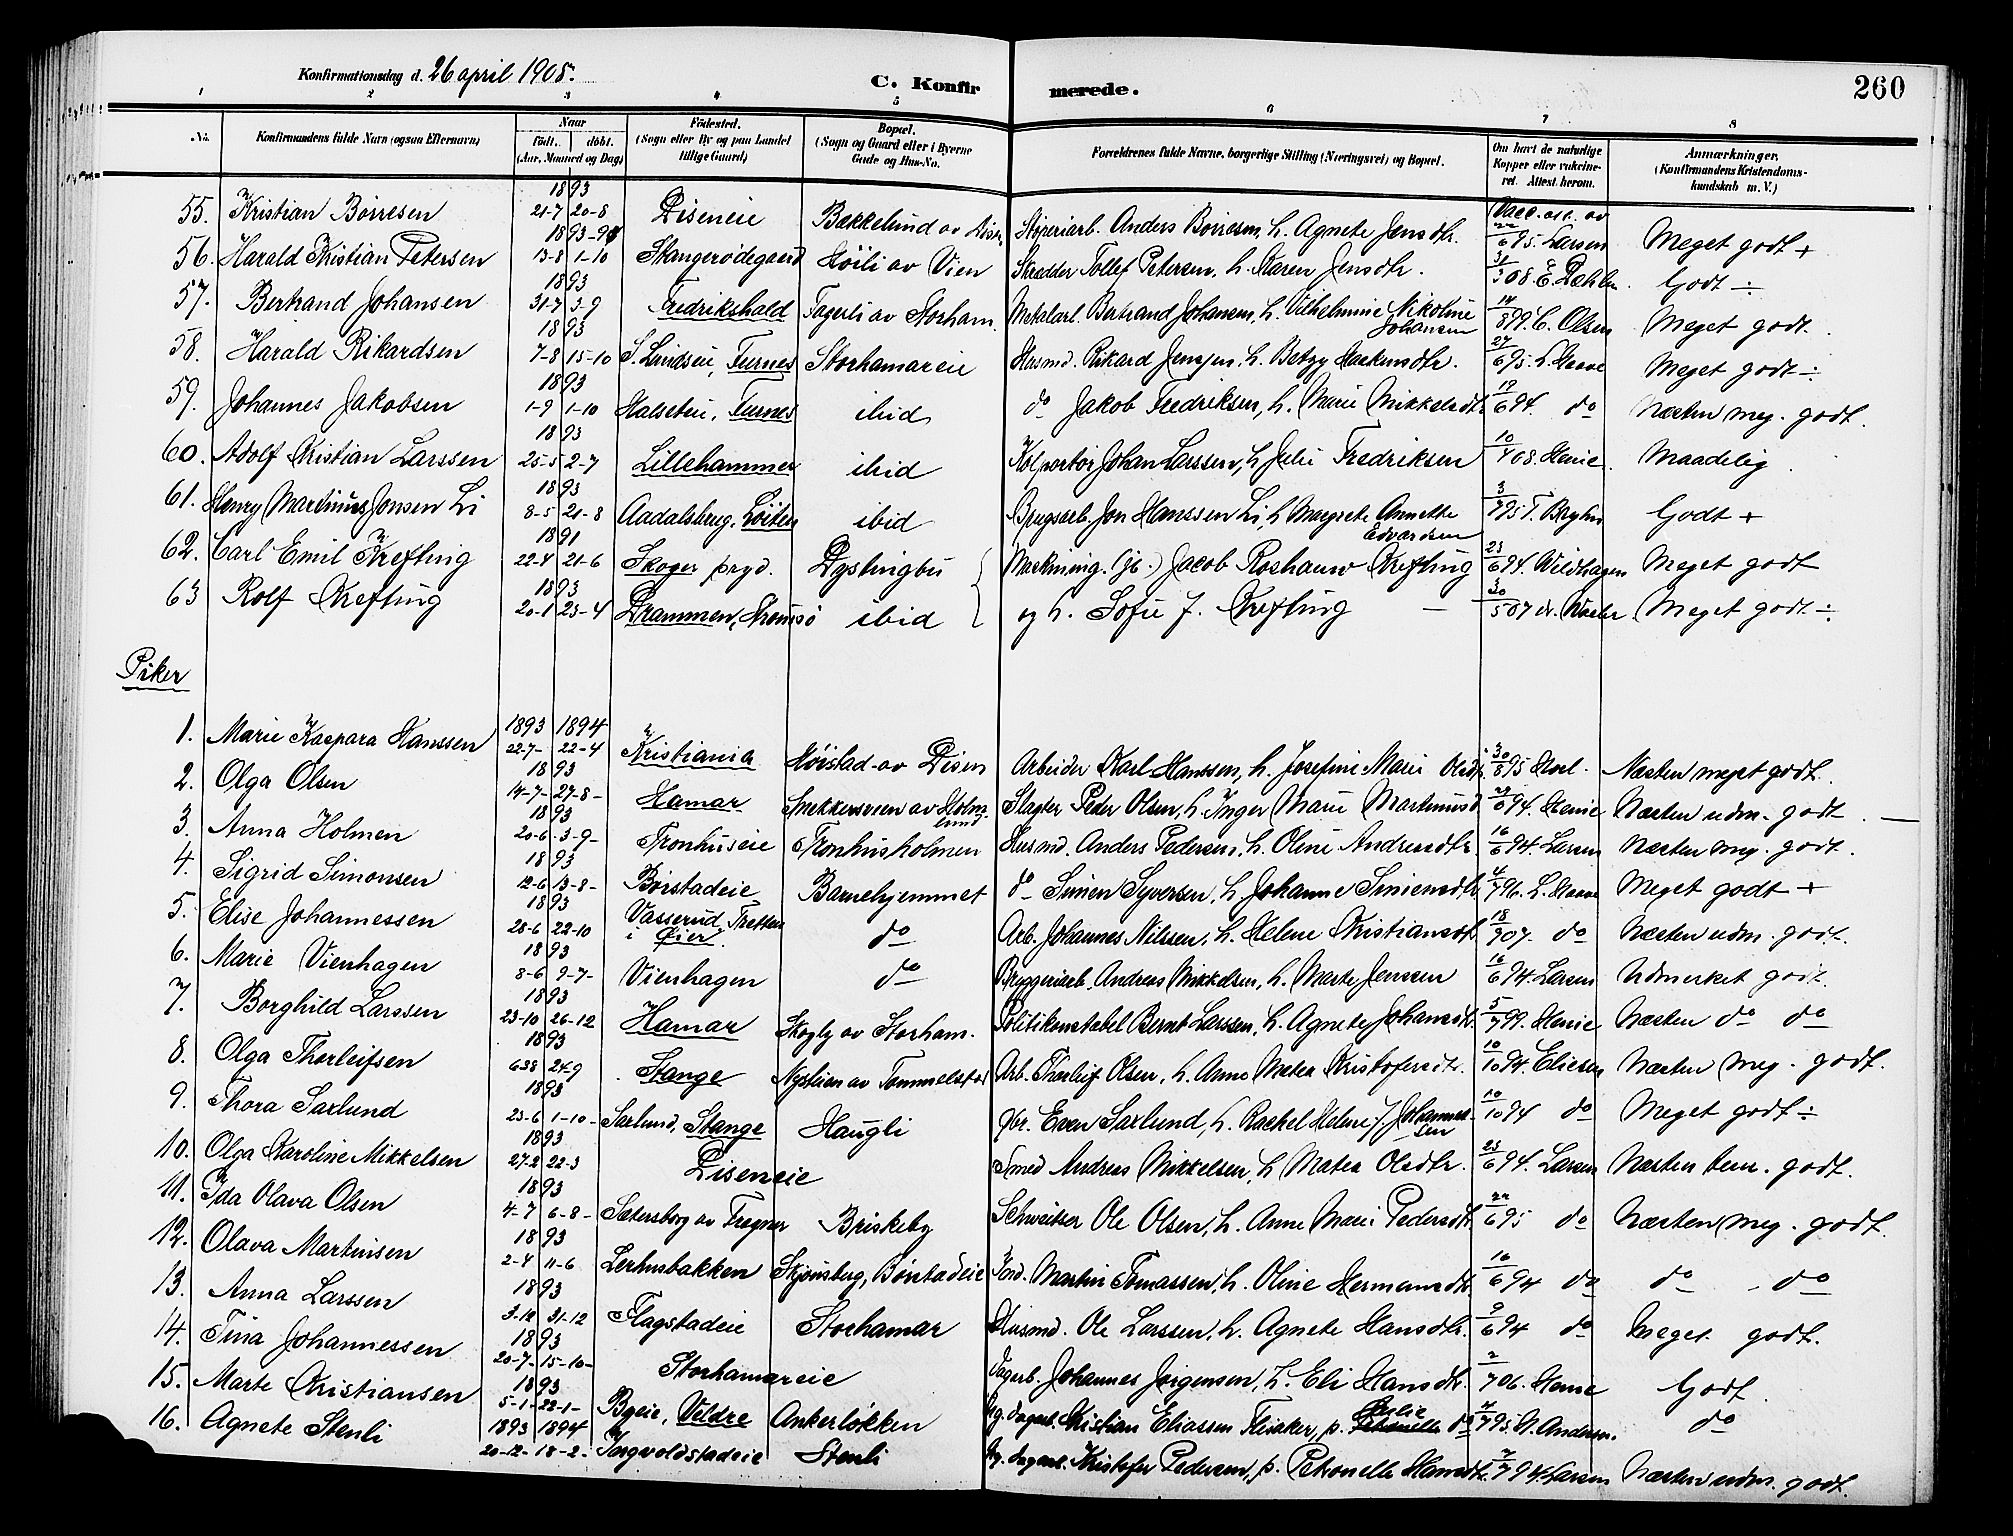 Konfirmationsdag d. 26 april 1908.
C. Konfirmerede.
260
1 2 3 4 5 6 7 8
No.
Konfirmandens fulde Navn (ogsaa Efternavn)
Naar født. døbt. (Aar, Maaned og Dag)
Fødested. (Sogn eller By og paa Landet tillige Gaard)
Bopæl. (Sogn og Gaard eller i Byerne Gade og Hus-No.
Forældrenes fulde Navne, borgerlige Stilling (Næringsvei) og Bopæl.
Om havt de naturlige Kopper eller vakcineret. Attest herom.
Anmærkninger. (Konfirmandens Kristendomskundskab m. V.)
55. Kristian Børresen 1893 21-7 20-8 Diseneie Bakkelund av Disen Anders Børresen, h. Agnete Jensdtr. Vacc. att. av 22/6 95. Larsen Meget godt +
56. Harald Kristian Petersen 1893-94 13-8 1-10 Stangerødegaard Høili av Vien Skrædder Tollef Petersen, h. Karen Jensdtr. 31/3 08. E. Godt ÷
57. Bertrand Johansen 1893 31-7 3-9 Fredrikshald Fagerli av Storham. Metalarb. Bertrand Johansen, h. Vilhelmine Nikoline Johansen 14/8 99. C. Olsen Meget godt.
58. Harald Rikardsen 1893 7-8 15-10 S. Lundseie, Furnes Storhamareie Husmd. Rikard Jensen, h. Betzy Haakensdtr. 27/6 95. L. Haave Meget godt ÷
59. Johannes Jakobsen 1893 1-9 1-10 Halseteie, Furnes ibid do Jakob Fredriksen, h. Marie Mikkelsdtr. 19/6 94. do Næsten meg. godt.
60. Adolf Kristian Larssen 1893 25-5 2-7 Lillehammer ibid Kolportør Johan Larssen, h. Julie Fredriksen 10/4 08. Henie. Maadelig
61. Henry Martinius Jonsen Li 1893 8-5 21-8 Aadalsbrug, Løiten ibid Brugsarb. Jon Hanssen Li, h. Margrete Annette Edvardsen 3/7 95 T. Bryhn Godt +
62. Carl Emil Krefting 1891 22-4 21-6 Skoger prgd. Dystingbu Maskining. (gb.) Jacob Roshauw Krefting 23/6 94. Wildhagen Meget godt
63 Rolf Krefting 1893 20-1 23-4 Drammen, Strømsø ibid og h. Sofie J. Krefting — 30/5 07 Meget godt ÷
Piker
1. Marie Kaspara Hanssen 1893 1894 22-7- 22-4 Kristiania Høistad av Disen Arbeider Karl Hanssen, h. Josefine Marie Olsdtr. 30/8 95 Næsten meget godt.
2. Olga Olsen 1893 14-7- 27-8- Hamar Snekkersveen av Holmlund Slagter Peder Olsen, h. Inger Marie Martinusd. 29/6 94. Henie Næsten udm. godt
3. Anna Holmen 1893 20-6- 3-9- Tronhuseie Tronhusholmen Husmd. Anders Pedersen, h. Oline Andreasdtr. 16/6 94. Larsen Næsten meg. godt.
4. Sigrid Simonsen 1893 12-6 13-8- Børstadeie Barnehjemmet do Simen Syversen, h. Johanne Simensdtr. 4/7 96. L. Haave Meget godt +
5. Elise Johannessen 1893 28-6 22-10 Vasserud, Tretten i Øier. do Arb. Johannes Nilssen, h. Helene Kristiansdtr. 18/9 07. do Næsten udm. godt.
6. Marie Vienhagen 1893 8-6 9-7- Vienhagen do Bryggeriarb. Andreas Mikkelsen, h. Marte Jenssen 16/6 94. Larsen Udmerket godt.
7. Borghild Larssen 1893 23-10 26-12 Hamar Skogly av Storham. Politikonstabel Bernt Larssen, h. Agnete Johansdtr. 5/7 99. Henie Næsten do do
8. Olga Thorleifsen 1893 24-9 Stange Nysteien av Tommelstad Arb. Thorleif Olsen, h. Anne Matea Kristofersdtr. 10/10 94. Eliesen Næsten meg. godt.
9. Thora Saxlund 1893 23-6 1-10- Saxlund, Stange Haugli gbr. Even Saxlund, h. Rachel Helene J. Johannessen 10/10 94 do Meget godt ÷
10. Olga Karoline Mikkelsen 1893 27-2 22-3 Diseneie Smed Andreas Mikkelsen, h. Matea Olsdtr. 23/6 94. Larsen Næsten godt.
11. Ida Olava Olsen 1893 4-7 6-8- Sætersborg av Fregner Briskeby Schweitser Ole Olsen, h. Anne Marie Pedersdtr. 22/6 95 do Næsten meg. godt.
12. Olava Martinsen 1893 2-4 11-6 Lerhusbakken Skjønsberg, Børstadeie Martin Tomassen, h. Oline Hermansdtr. 16/6 94 do do do
13. Anna Larssen 1893 3-12 31-12 Flagstadeie Storhamar Husmd. Ole Larssen, h. Agnete Hansdtr. 9/6 94 do Meget godt.
14. Tina Johannessen 1893 20-7- 15-10- Storhamareie Dagarb. Johannes Jørgensen, h. Eli Hansdtr. 2/7 06. Henie Godt
15. Marte Kristiansen 1893 5-1- 22-1- Byeie, Veldre Ankerløkken Ug. dagarb. Kristian Eliassen p. Julie do 4/7 95. N. Andersen. do
16. Agnete Stenli 1893 1894 20-12- 18-2- Ingvoldstadeie Stenli Ug. dagarb. Kristofer Pedersen, p. Petronelle Hansdtr. 7/7 94. Larsen Næsten udm. godt.